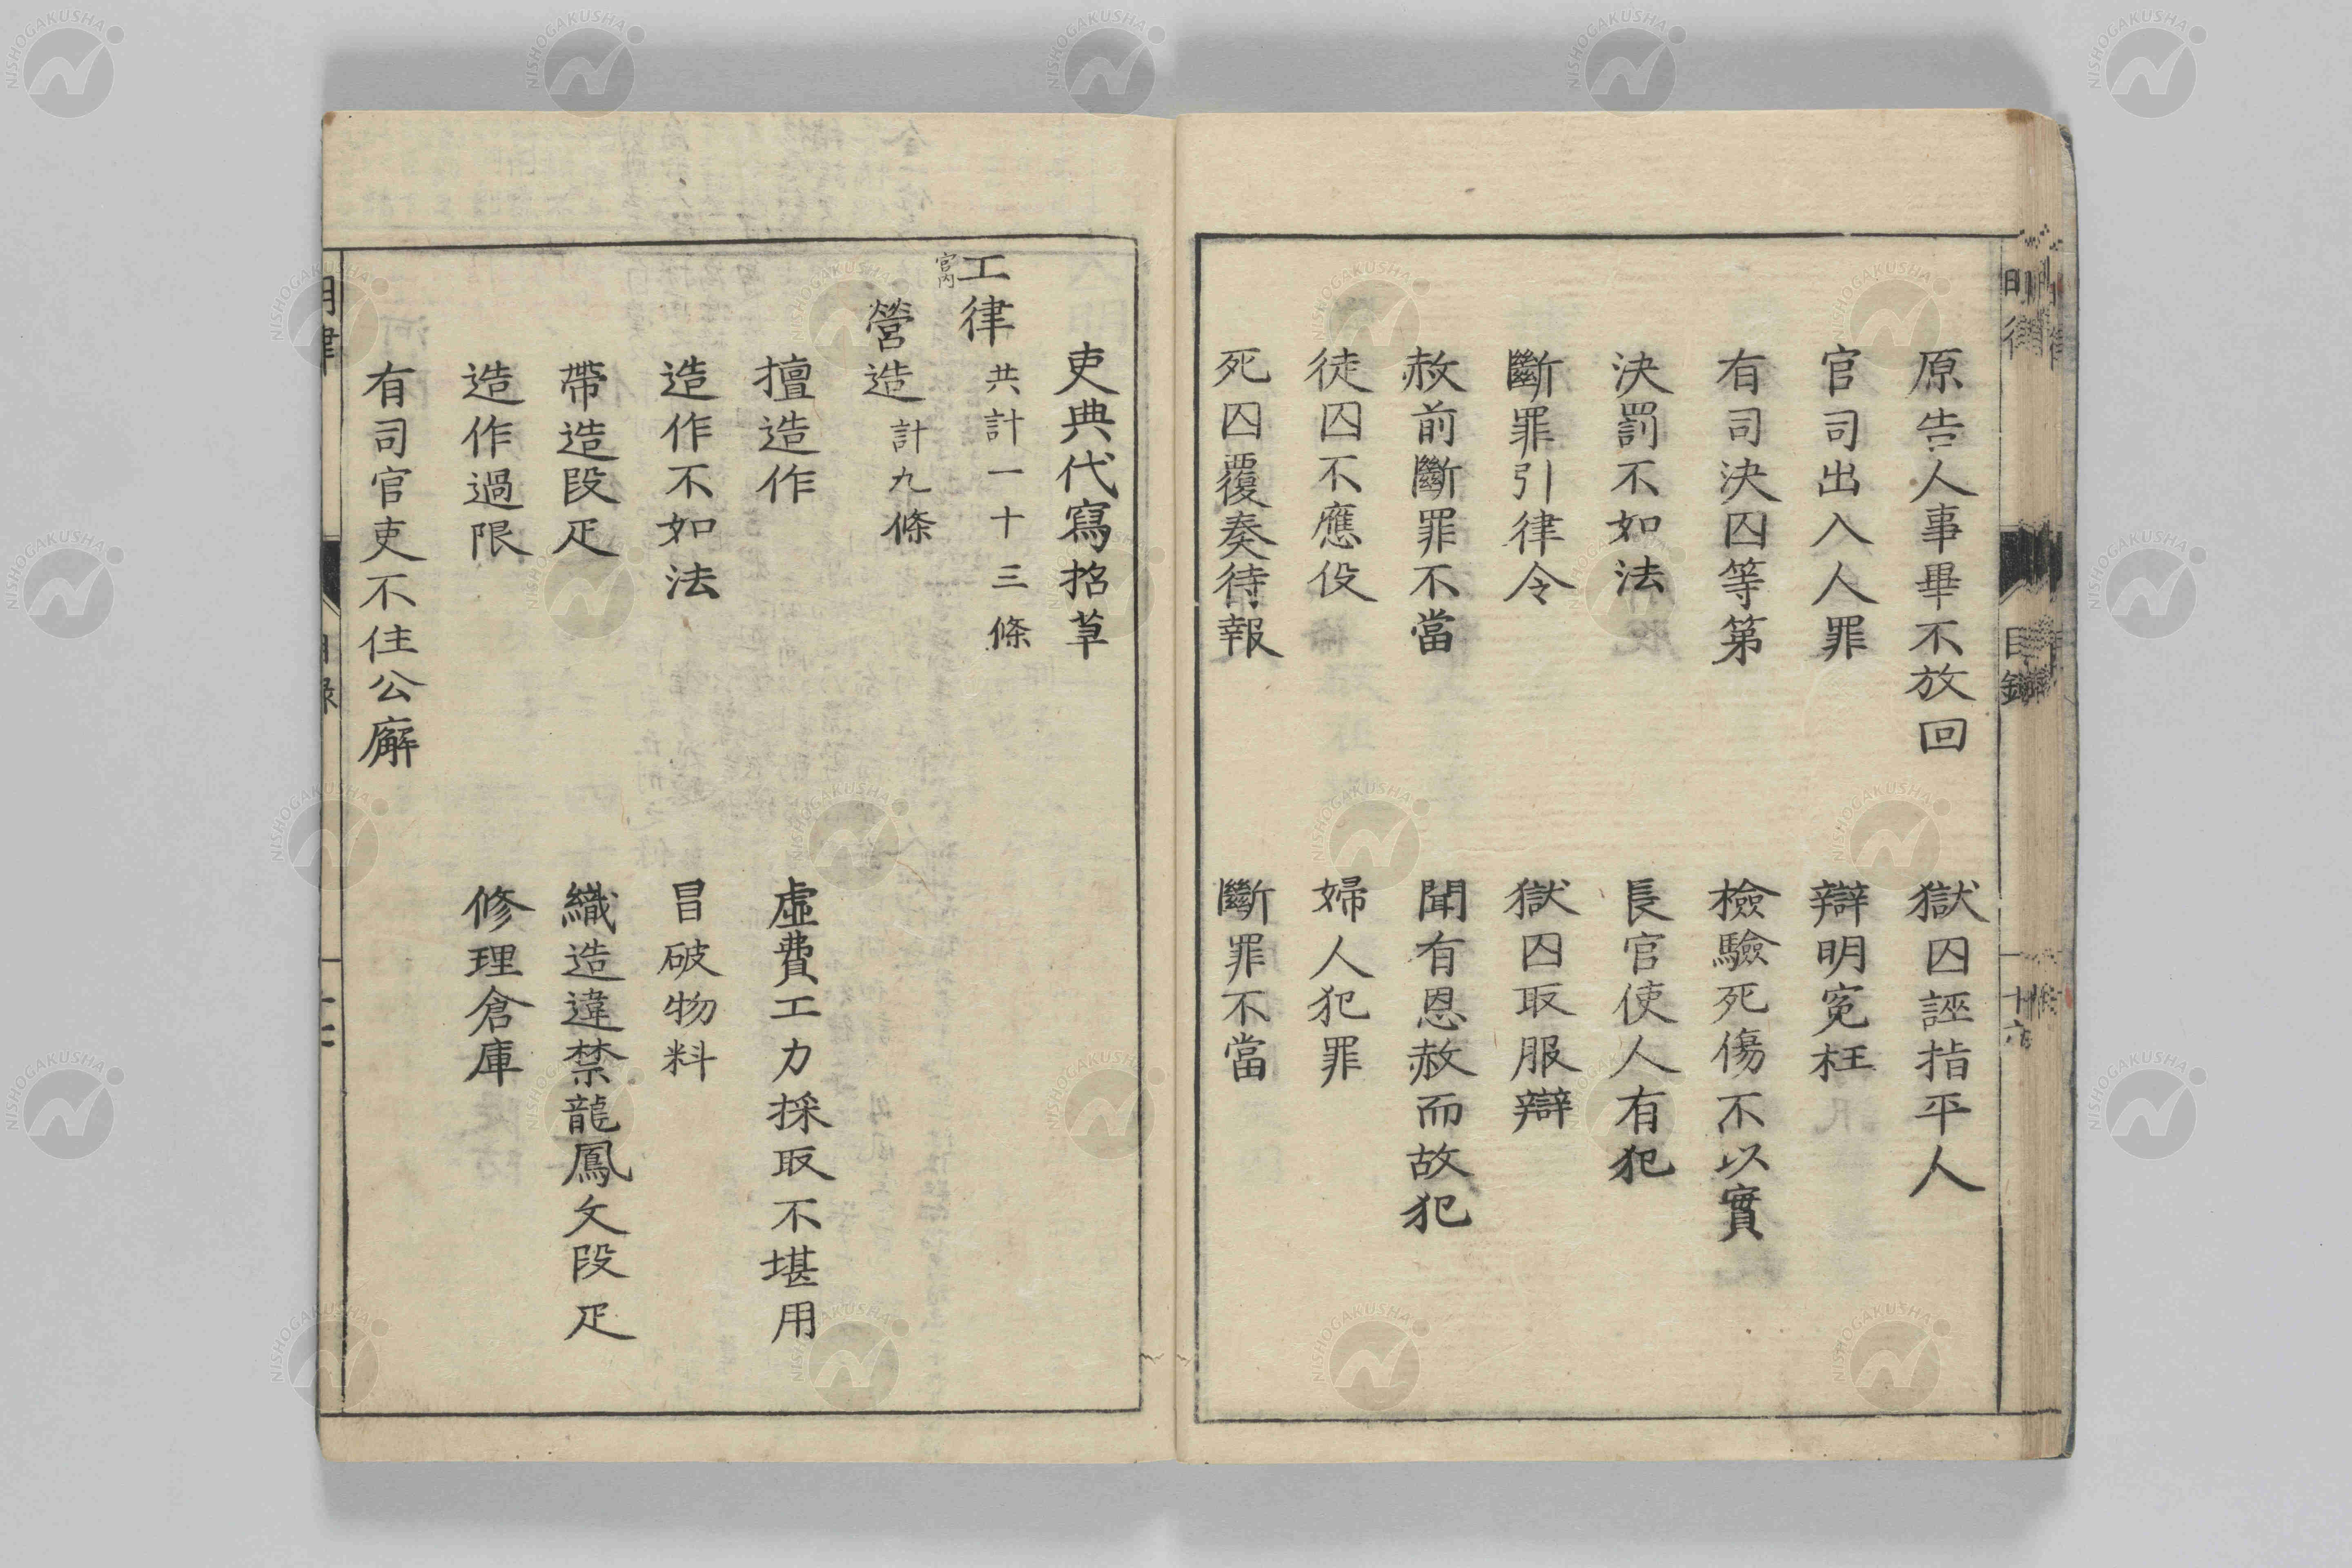 原告人事畢不放回　獄囚誣指平人
官司出入人罪　辯明冤枉
有司決囚等第　檢驗死傷不以實
決罰不如法　長官使人有犯
斷罪引律令　獄囚取服辯
赦前斷罪不當　聞有恩赦而故犯
徒囚不應役　婦人犯罪
死囚覆奏待報　斷罪不當
吏典代寫招草
工律共計一十三條
營造計九條
擅造作　虛費工力採取不堪用
造作不如法　冒破物料
帶造段疋　織造違禁龍鳳文段疋
造作過限　修理倉庫
有司官吏不住公廨
明律　目錄
NISHOGAKUSHA